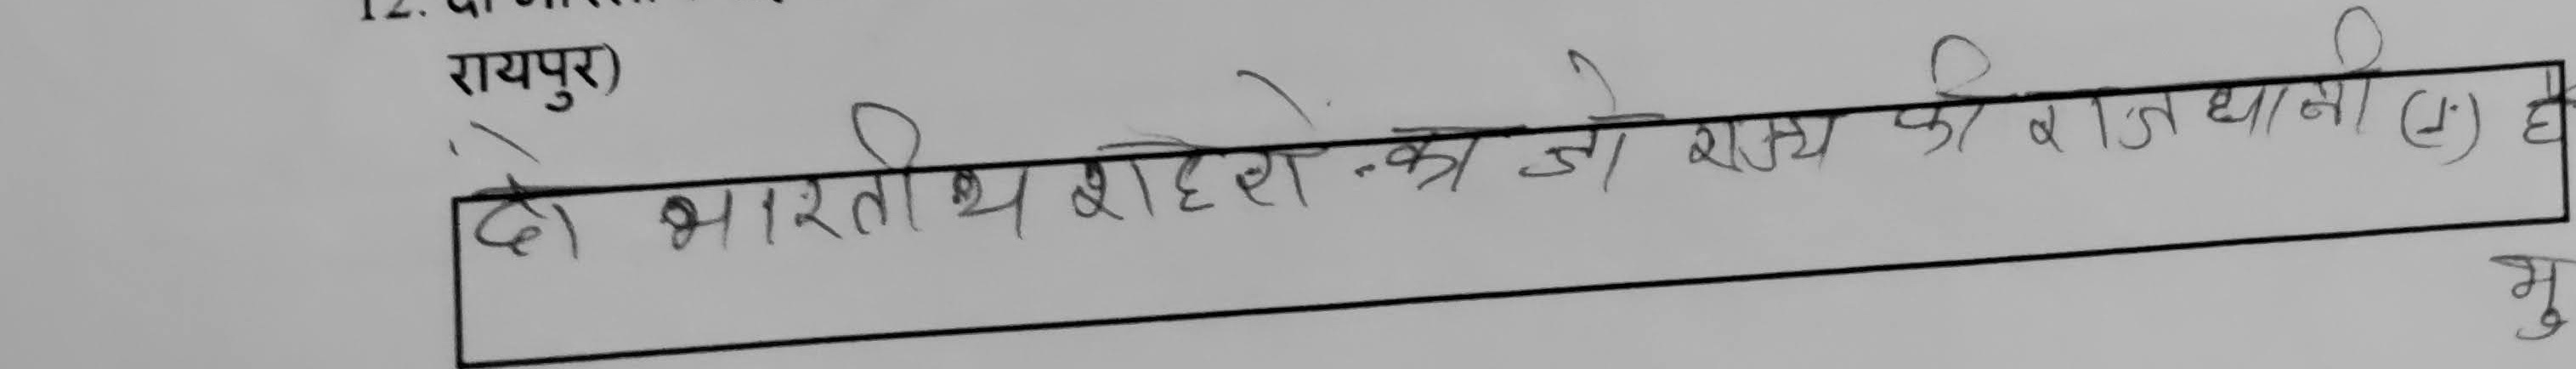 12. दो
रायपुर)
दो भारतीय शहरों का जो राज्य की राजधानी (र) है
मु